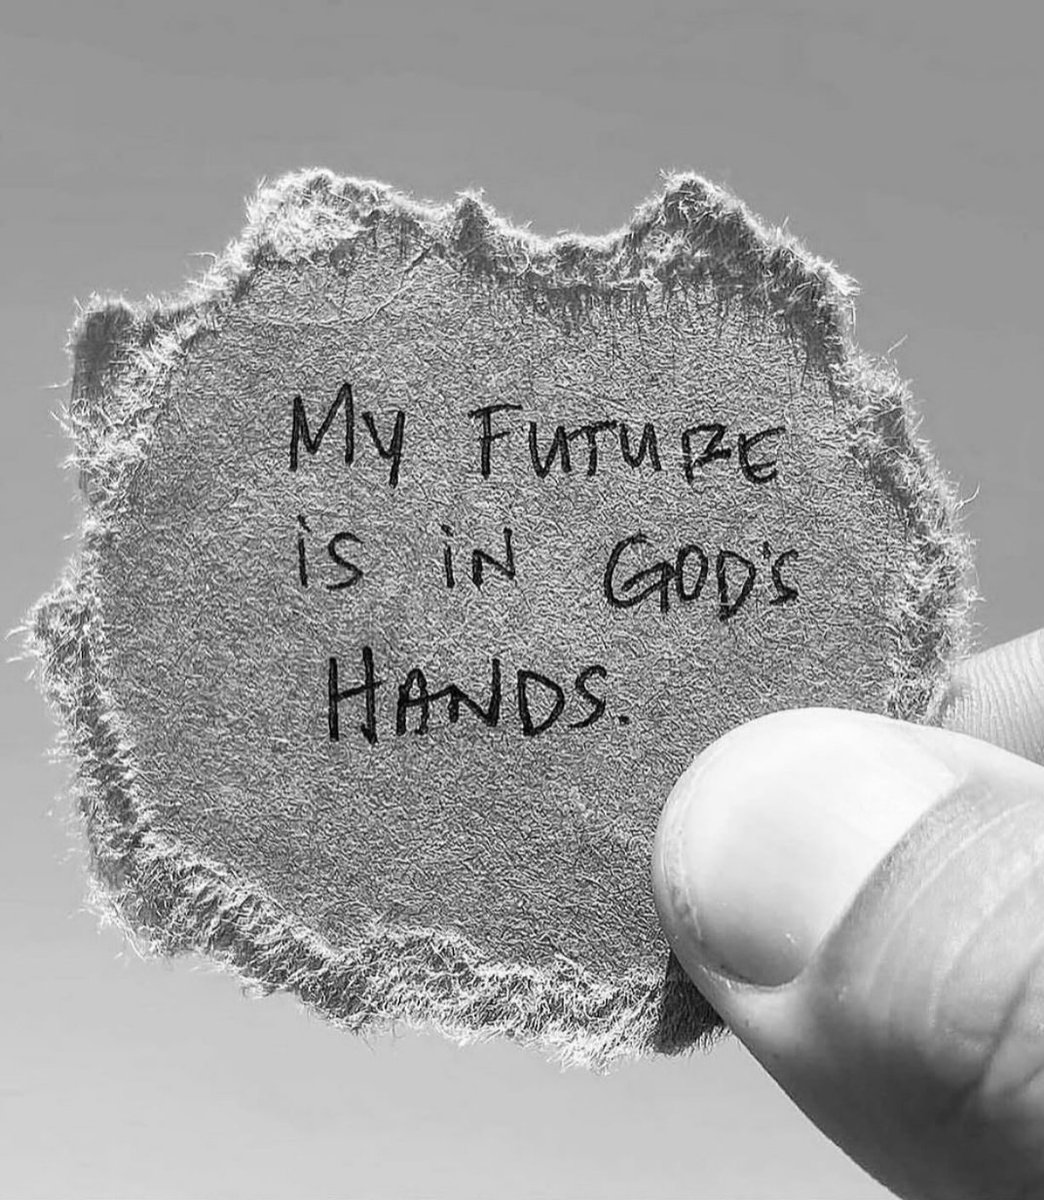 My FUTURE
is iN GOD'S
HANDS.